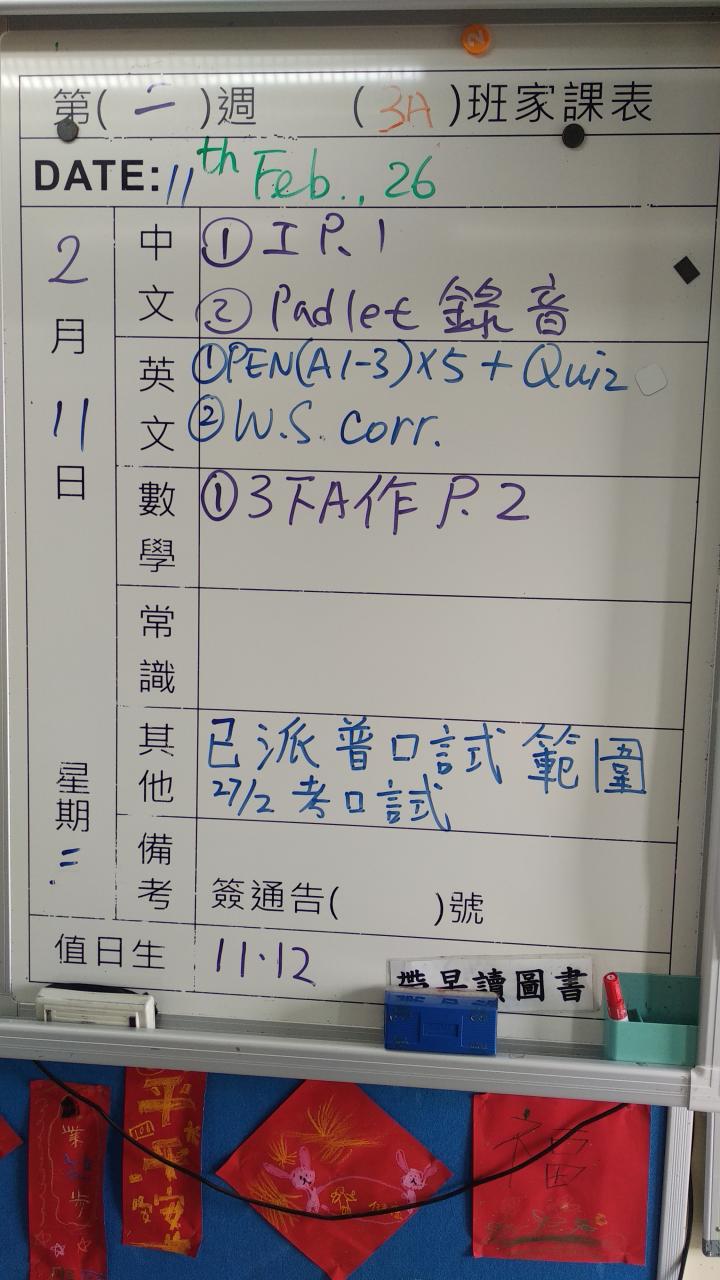 第(二)週 (3A)班家課表
DATE: 11th Feb., 26
2月11日
星期二
中文
① 工 P. 1
② Padlet 錄音
英文
① PEN(A1-3)X5 + Quiz
② W.S. Corr.
數學
① 3下A作 P. 2
常識
其他
已派普口試範圍
27/2 考口試
備考
簽通告( )號
值日生
11.12
帶早讀圖書
平平安安
福